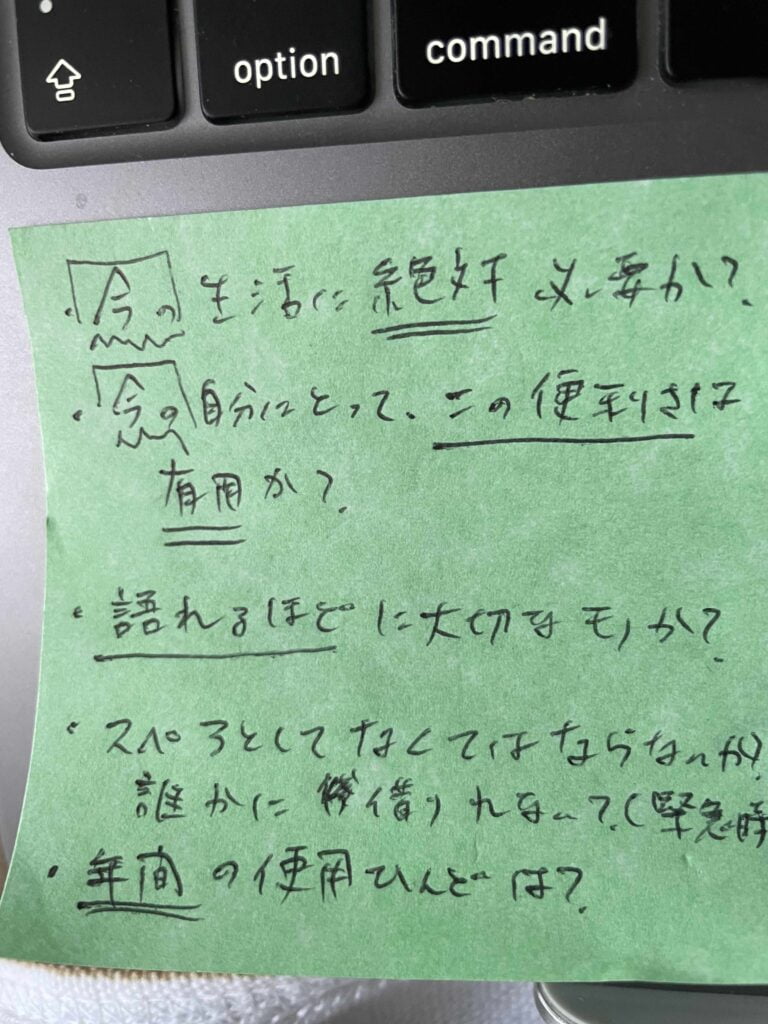 option
command
・今の生活に絶対必要か?
・今の自分にとって、この便利さは
有用か?
・語れるほどに大切なモノか?
・スペアとしてなくてはならないか?
誰かに借りれない?(緊急時
・年間の使用ひんどは?